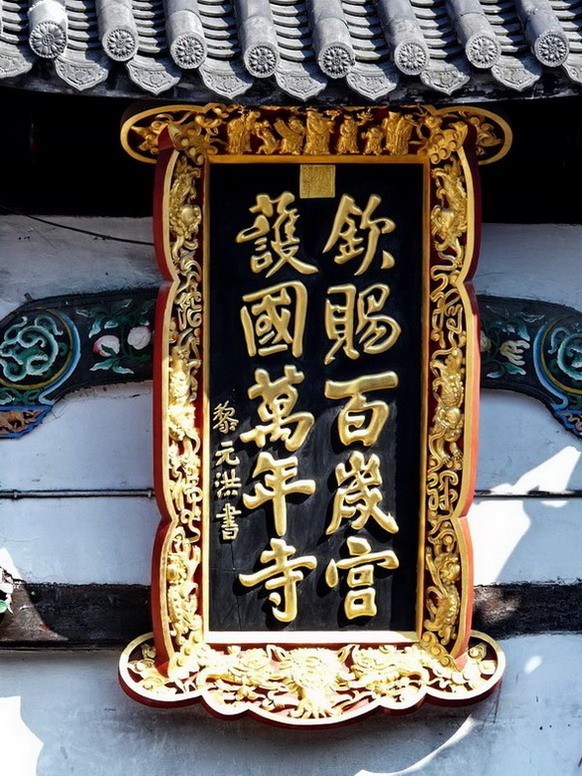 欽賜百歲宮
護國萬年寺
黎元洪書